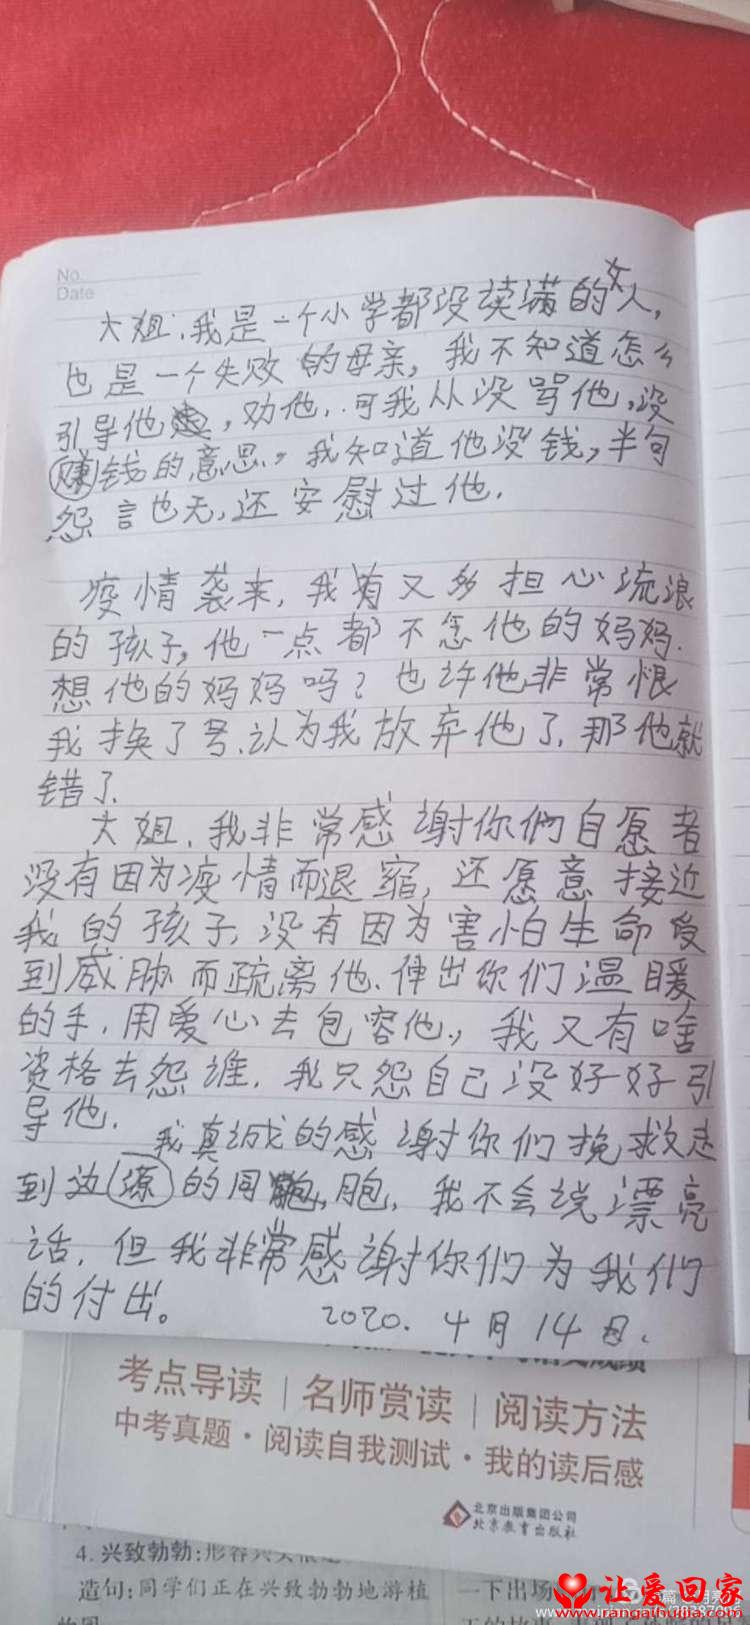 No.
Date
大姐，我是一个小学都没读满的女人，
也是一个失败的母亲，我不知道怎么
引导他，劝他，可我从没骂他，没
赚钱的意思。我知道他没钱，半句
怨言也无，还安慰过他.
疫情袭来，我有又多担心流浪
的孩子，他一点都不怎他的妈妈.
想他的妈妈吗？也许他非常恨
我换了号、认为我放弃他了，那他就
错了
大姐，我非常感谢你们自愿者
没有因为疫情而退宿，还愿意接近
我的孩子，没有因为害怕生命受
到威胁而疏离他、伸出你们温暖
的手，用爱心去包容他，我又有啥
资格去怨谁，我只怨自己没好好引
导他.
我真诚的感谢你们挽救走
到边潦的同胞，胞，我不会说漂亮
话，但我非常感谢你们为我们
的付出。 2020. 4月14日.
考点导读 | 名师赏读 | 阅读方法
中考真题·阅读自我测试·我的读后感
北京出版集团公司
北京教育出版社
4. 兴致勃勃:形容兴头很
造句:同学们正在兴致勃勃地游植
一下出场
让爱回家
www.rangaihuijia.com